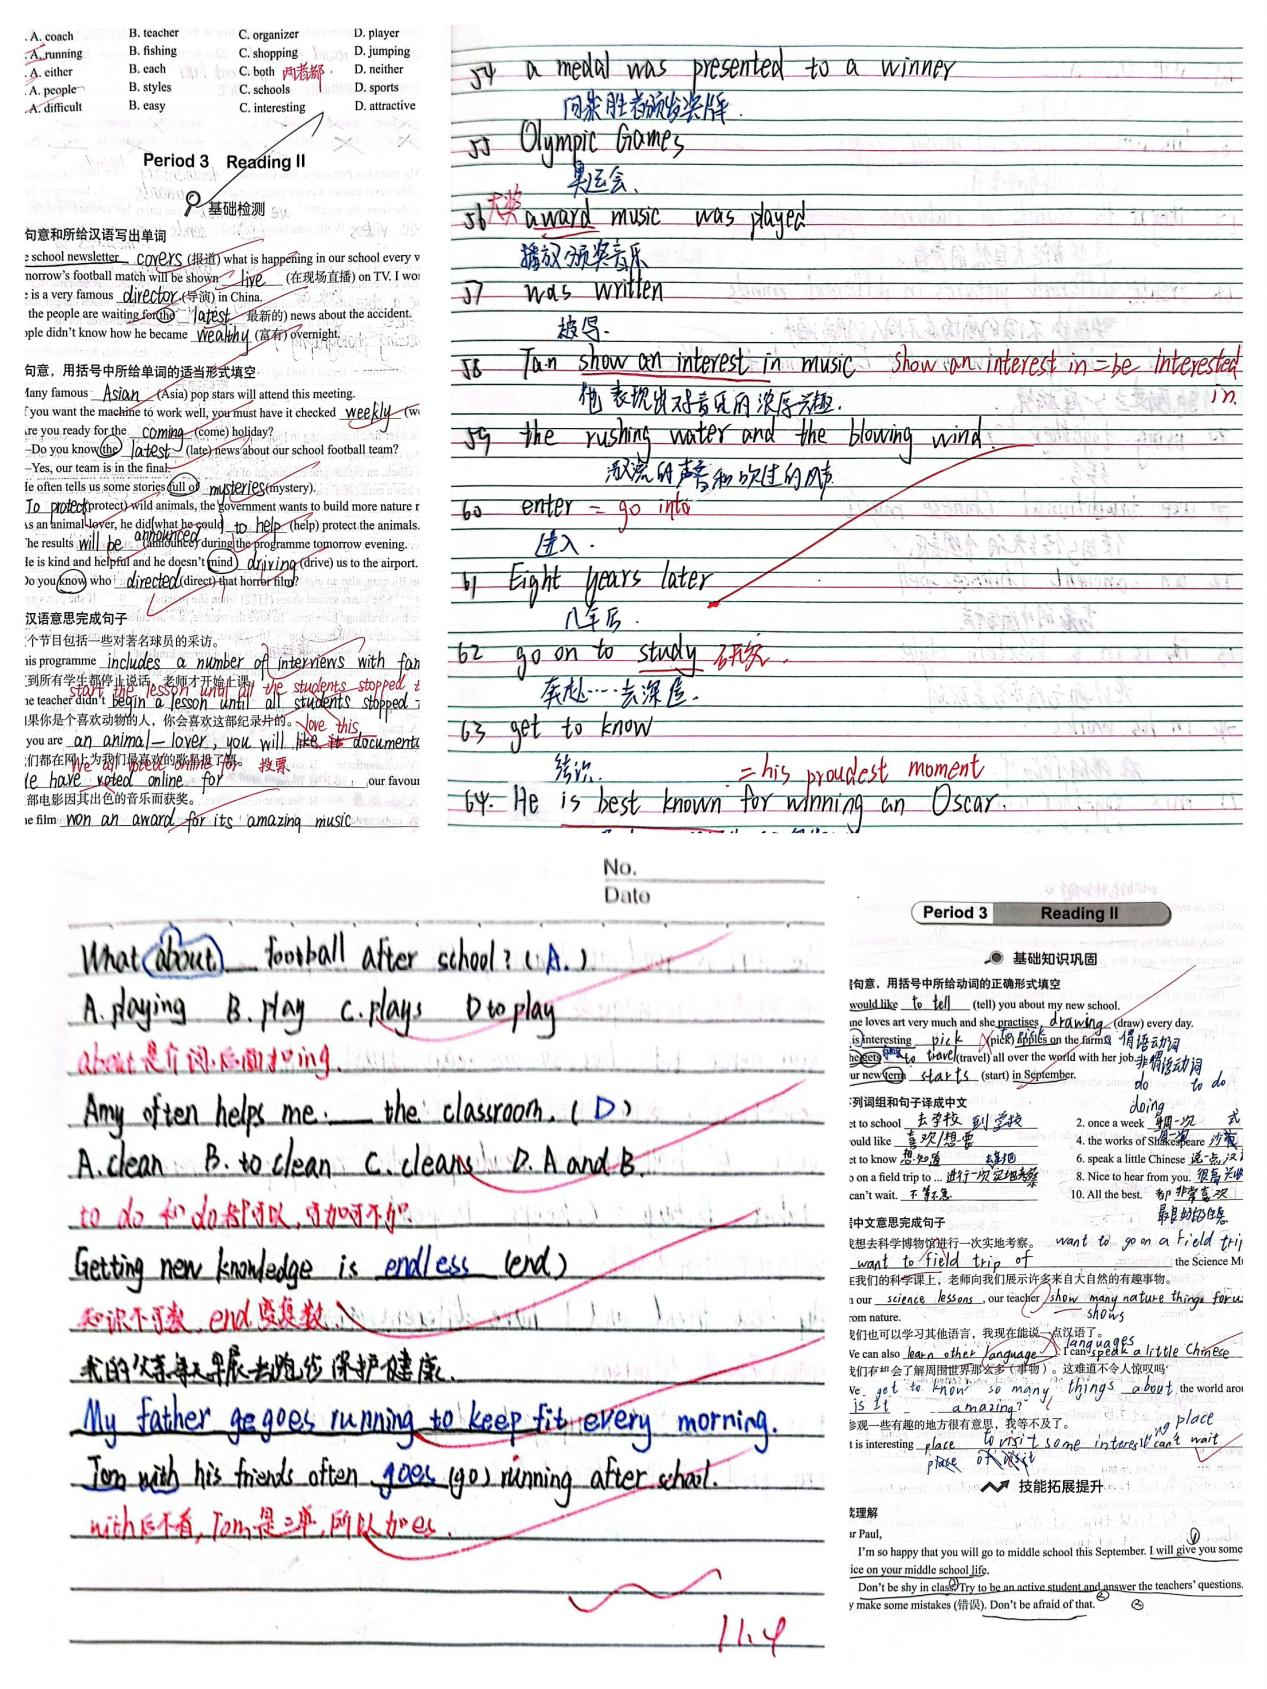 A. coach B. teacher C. organizer D. player
A. running B. fishing C. shopping D. jumping
A. either B. each C. both 两者都. D. neither
A. people B. styles C. schools D. sports
A. difficult B. easy C. interesting D. attractive
Period 3 Reading II
基础检测
句意和所给汉语写出单词
e school newsletter covers (报道) what is happening in our school every w
morrow's football match will be shown live (在现场直播) on TV. I wo
e is a very famous director (导演) in China.
the people are waiting for the latest 最新的) news about the accident.
ople didn't know how he became wealthy (富有) overnight.
句意，用括号中所给单词的适当形式填空
Many famous Asian (Asia) pop stars will attend this meeting.
f you want the machine to work well, you must have it checked weekly (w
re you ready for the coming (come) holiday?
—Do you know the latest (late) news about our school football team?
—Yes, our team is in the final.
He often tells us some stories full of mysteries (mystery).
To protect (protect) wild animals, the government wants to build more nature r
As an animal lover, he did what he could to help (help) protect the animals.
The results will be announced (announce) during the programme tomorrow evening.
He is kind and helpful and he doesn't mind driving (drive) us to the airport.
Do you know who directed (direct) that horror film?
汉语意思完成句子
个节目包括一些对著名球员的采访。
his programme includes a number of interviews with fam
到所有学生都停止说话，老师才开始上课。
start the lesson until all the students stopped t
he teacher didn't begin a lesson until all students stopped
果你是个喜欢动物的人，你会喜欢这部纪录片的。 love this
you are an animal-lover, you will like documenta
们都在网上为我们最喜欢的歌星投了票。 投票
We all voted online for
We have voted online for our favour
部电影因其出色的音乐而获奖。
he film won an award for its amazing music
54 a medal was presented to a winner
向获胜者颁发奖牌.
55 Olympic Games
奥运会.
56 大奖 award music was played
播放颁奖音乐
57 was written
被写.
58 Tan show an interest in music show an interest in = be interested in.
他表现出对音乐的浓厚兴趣.
59 the rushing water and the blowing wind.
激流的声音和吹过的风声
60 enter = go into
进入.
61 Eight years later
八年后.
62 go on to study 研究.
奔赴……去深造.
63 get to know
结识. = his proudest moment
64. He is best known for winning an Oscar.
No.
Date
What about ___ football after school? (A.)
A. playing B. play C. plays D to play
about是介词,后面加ing.
Amy often helps me ___ the classroom. (D)
A. clean B. to clean C. cleans D. A and B.
to do 和 do 都可以,可加可不加.
Getting new knowledge is endless (end)
知识不可数, end变复数
我的父亲每天早晨去跑步保护健康.
My father ge goes running to keep fit every morning.
Tom with his friends often goes (go) running after school.
with后不看, Tom是三单,所以加es.
11.4
Period 3 Reading II
基础知识巩固
句意，用括号中所给动词的正确形式填空
would like to tell (tell) you about my new school.
ne loves art very much and she practises drawing (draw) every day.
is interesting pick to pick (pick) apples on the farm. 谓语动词
he gets to travel (travel) all over the world with her job. 非谓语动词
ur new term starts (start) in September. do to do
doing
列词组和句子译成中文
et to school 去学校 到学校 2. once a week 每周一次
ould like 喜欢/想要 4. the works of Shakespeare
et to know 想知道 6. speak a little Chinese 说一点汉
o on a field trip to ... 进行一次实地考察 8. Nice to hear from you. 很高兴收
can't wait. 不等不急 10. All the best. 都非常喜欢
最良好的祝愿
中文意思完成句子
我想去科学博物馆进行一次实地考察。 want to go on a field trip
want to field trip of the Science Mu
在我们的科学课上，老师向我们展示许多来自大自然的有趣事物。
n our science lessons, our teacher show many nature things for us
from nature. shows
我们也可以学习其他语言，我现在能说一点汉语了。
languages
We can also learn other language. I can speak a little Chinese
我们有机会了解周围世界那么多（事物）。这难道不令人惊叹吗
We get to know so many things about the world arou
is it amazing?
参观一些有趣的地方很有意思，我等不及了。
ng place
t is interesting place to visit some interes can't wait
place of visit
技能拓展提升
读理解
ar Paul,
I'm so happy that you will go to middle school this September. I will give you some
ice on your middle school life.
Don't be shy in class. Try to be an active student and answer the teachers' questions.
y make some mistakes (错误). Don't be afraid of that.